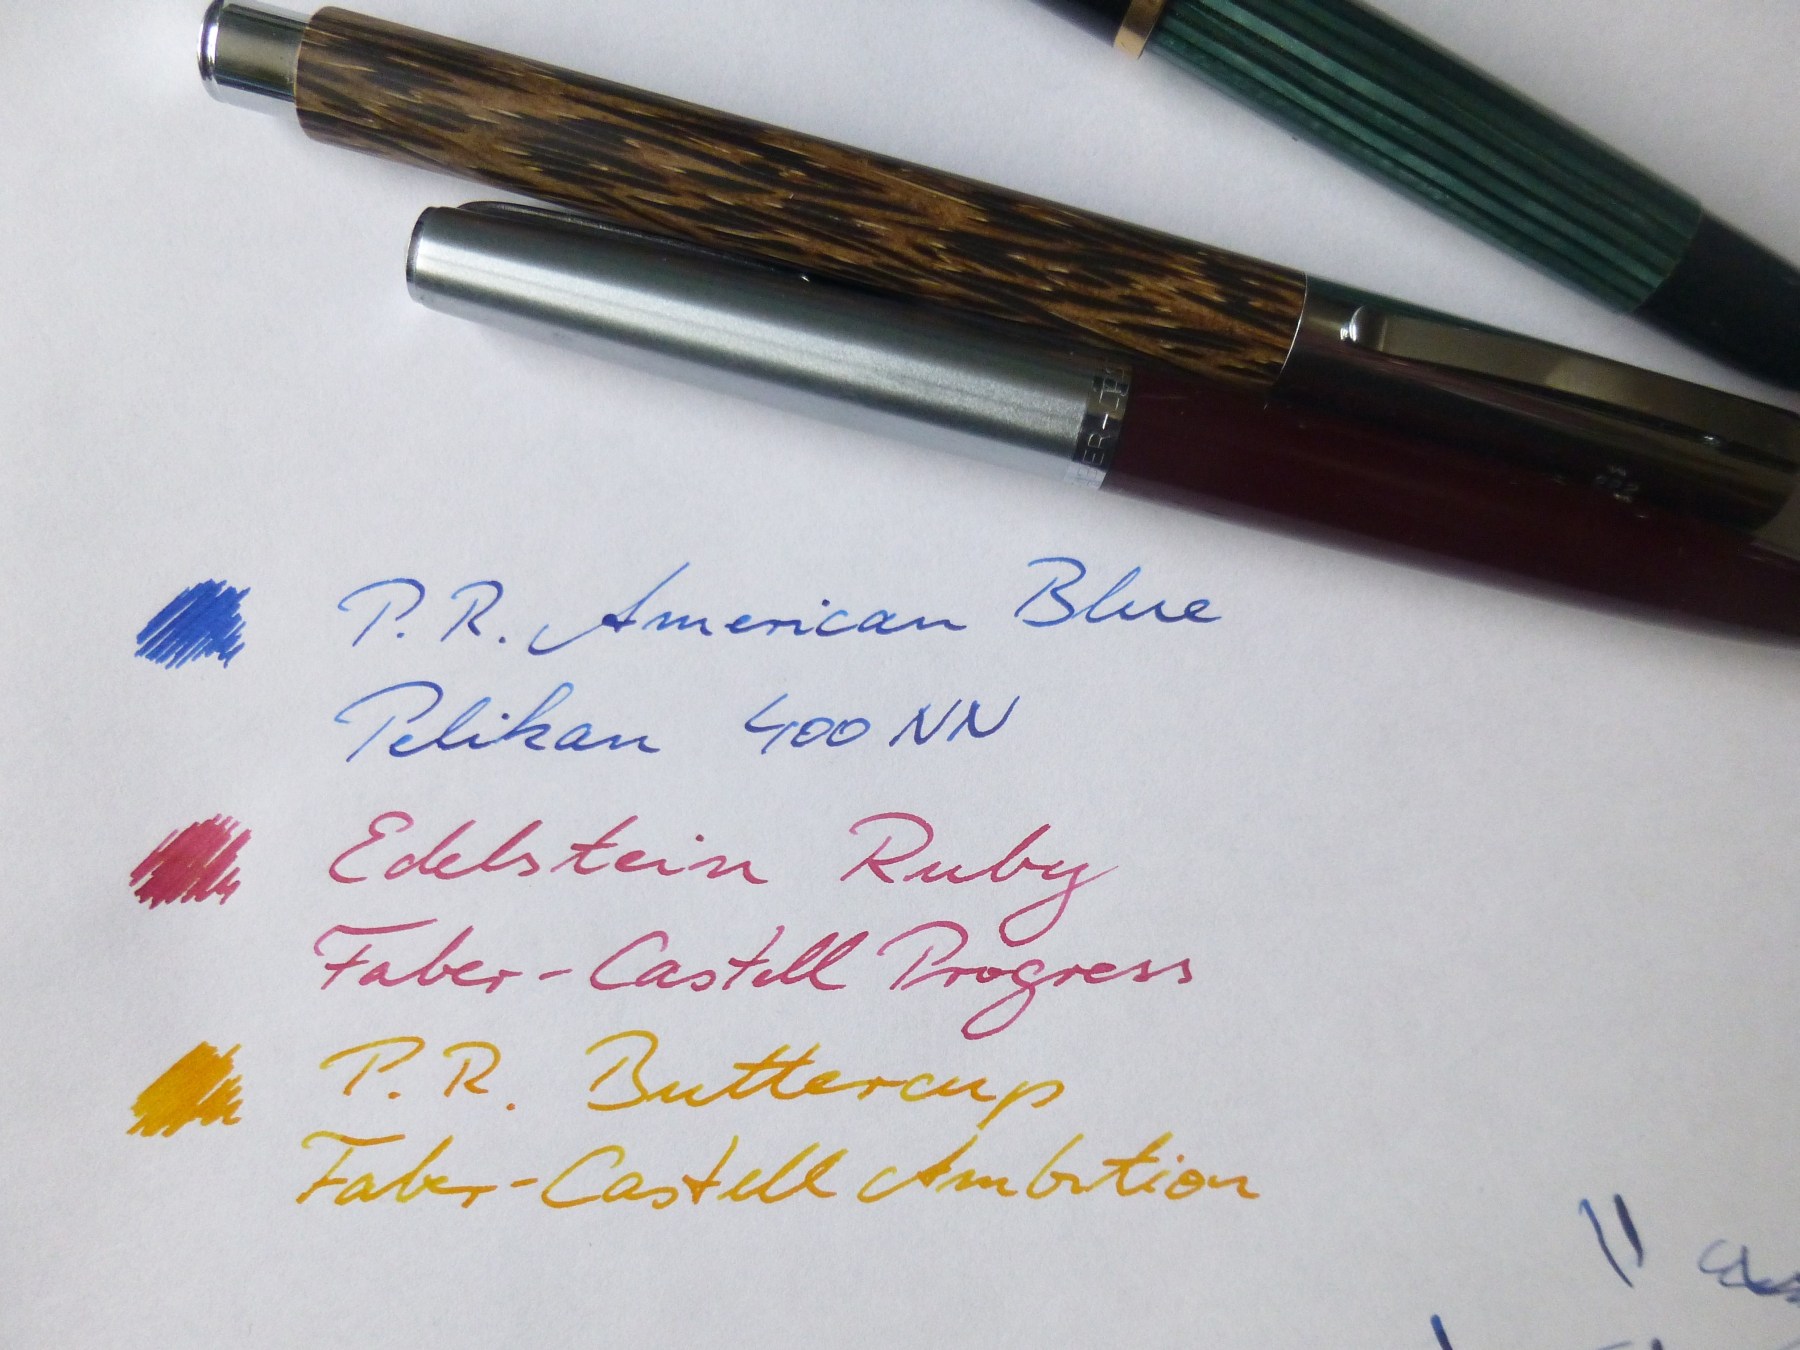 P. R. American Blue
Pelikan 400 NN
Edelstein Ruby
Faber-Castell Progress
P. R. Buttercup
Faber-Castell Ambition